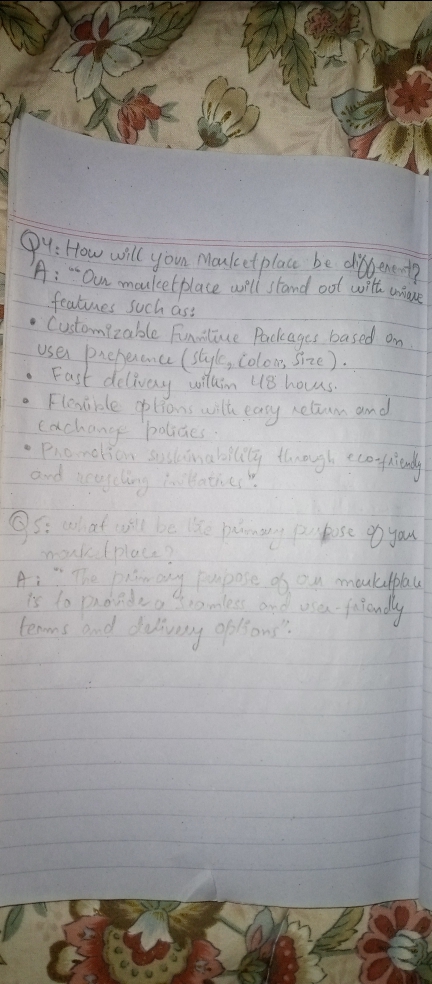 Q4: How will your Marketplace be different?
A: "Our marketplace will stand out with unique
features such as:
• Customizable Furniture Packages based on
user preference (style, color, size).
• Fast delivery within 48 hours.
• Flexible options with easy return and
exchange policies.
• Promotion sustainability through eco-friendly
and recycling initiatives".
Q5: What will be the primary purpose of your
marketplace?
A: "The primary purpose of our marketplace
is to provide a seamless and user-friendly
terms and delivery options".